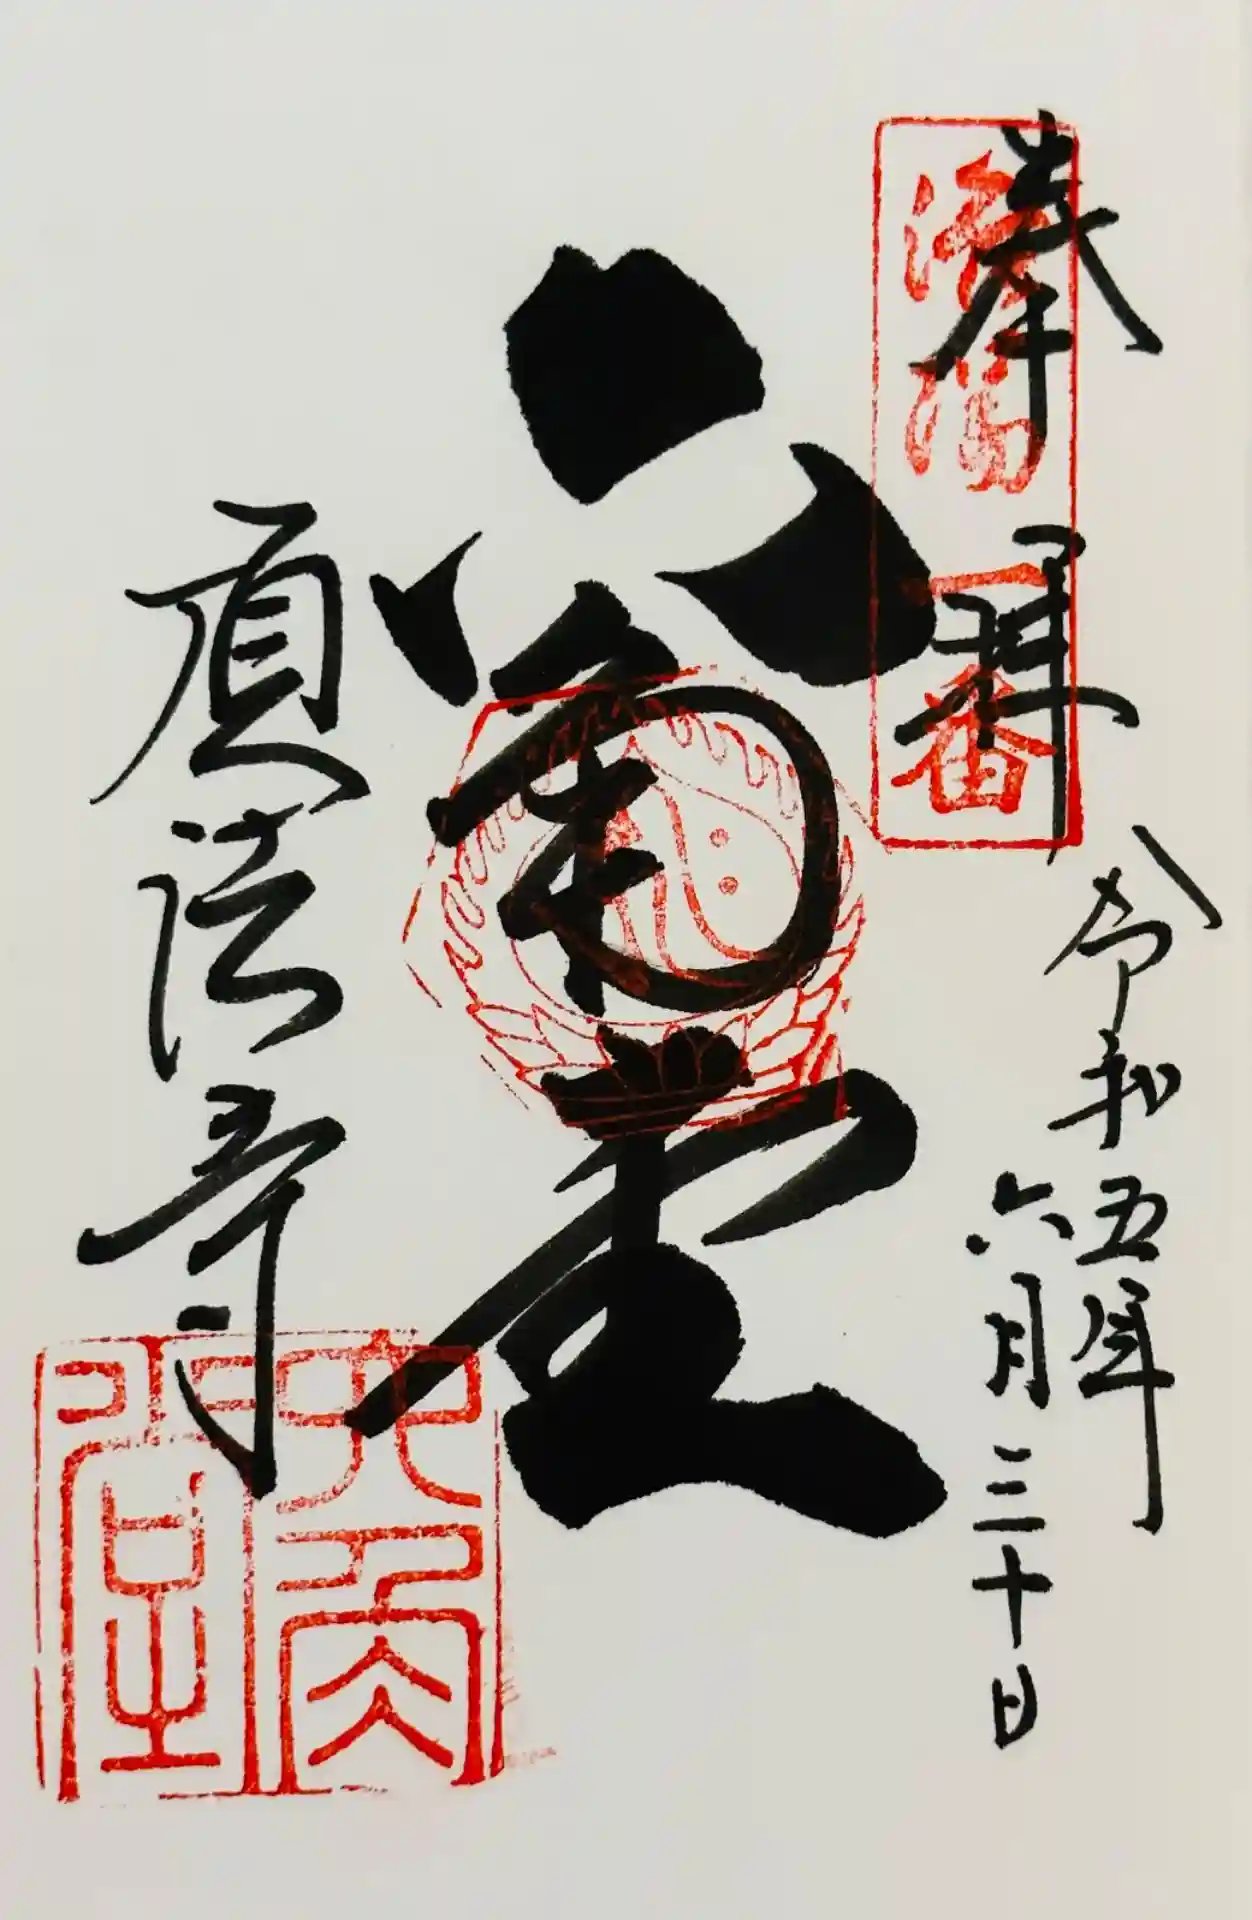 奉拝
洛陽一番
令和五年
六月三十日
六角堂
頂法寺
六角堂